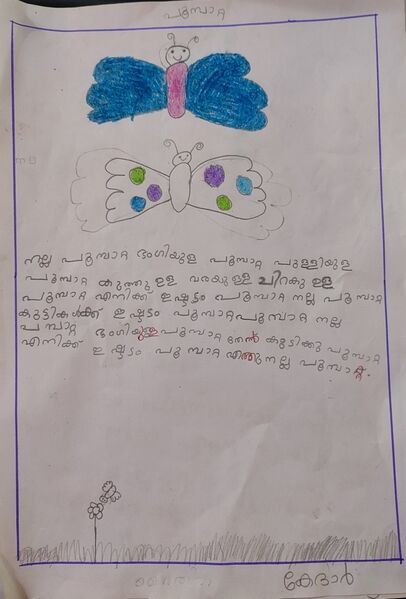 പൂമ്പാറ്റ
നല്ല പൂമ്പാറ്റ ഭംഗിയുള പൂമ്പാറ്റ പുള്ളിയുള
പൂമ്പാറ്റ കുത്തു ഉള വരയുള്ള ചിറകു ഉള്ള
പൂമ്പാറ്റ എനിക്ക് ഇഷ്ടം പൂമ്പാറ്റ നല്ല പൂമ്പാറ്റ
കുട്ടികൾക്ക് ഇഷ്ടം പൂമ്പാറ്റ പൂമ്പാറ്റ നല്ല
പമ്പാറ്റ ഭംഗിയുള്ള പൂമ്പാറ്റ തേൻ കുടിക്കു പൂമ്പാറ്റ
എനിക്ക് ഇഷ്ടം പൂമ്പാറ്റ എന്തു നല്ല പൂമ്പാറ്റ.
കേദാർ